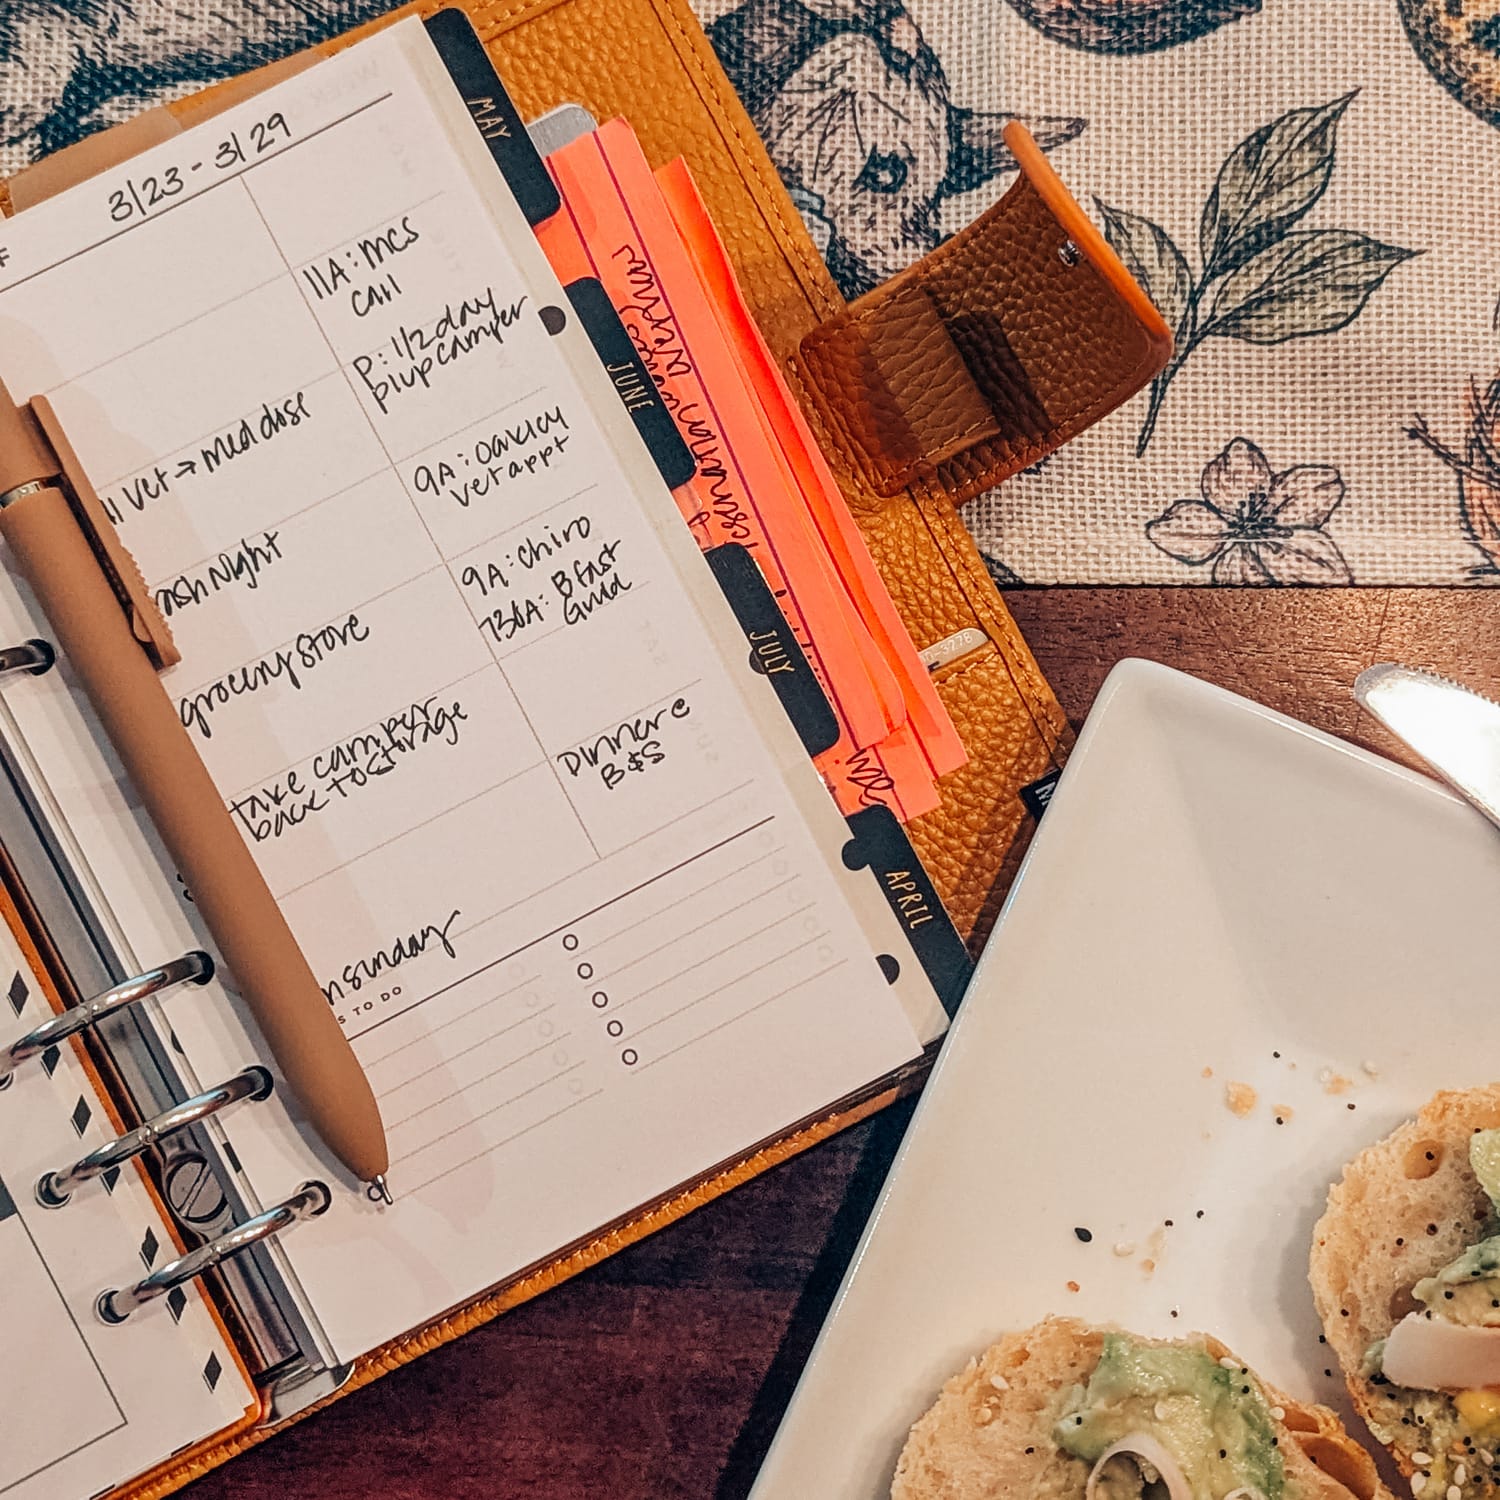 F
3/23 - 3/29
11A: mcs
call
P: 1/2 day
p/up camper
vet → med dose
9A: Oakley
vet appt
Night
9A: chiro
730A: Bfast
Gma
grocery store
take camper
back to storage
Dinner @
B&S
sunday
S TO DO
MAY
JUNE
JULY
APRIL